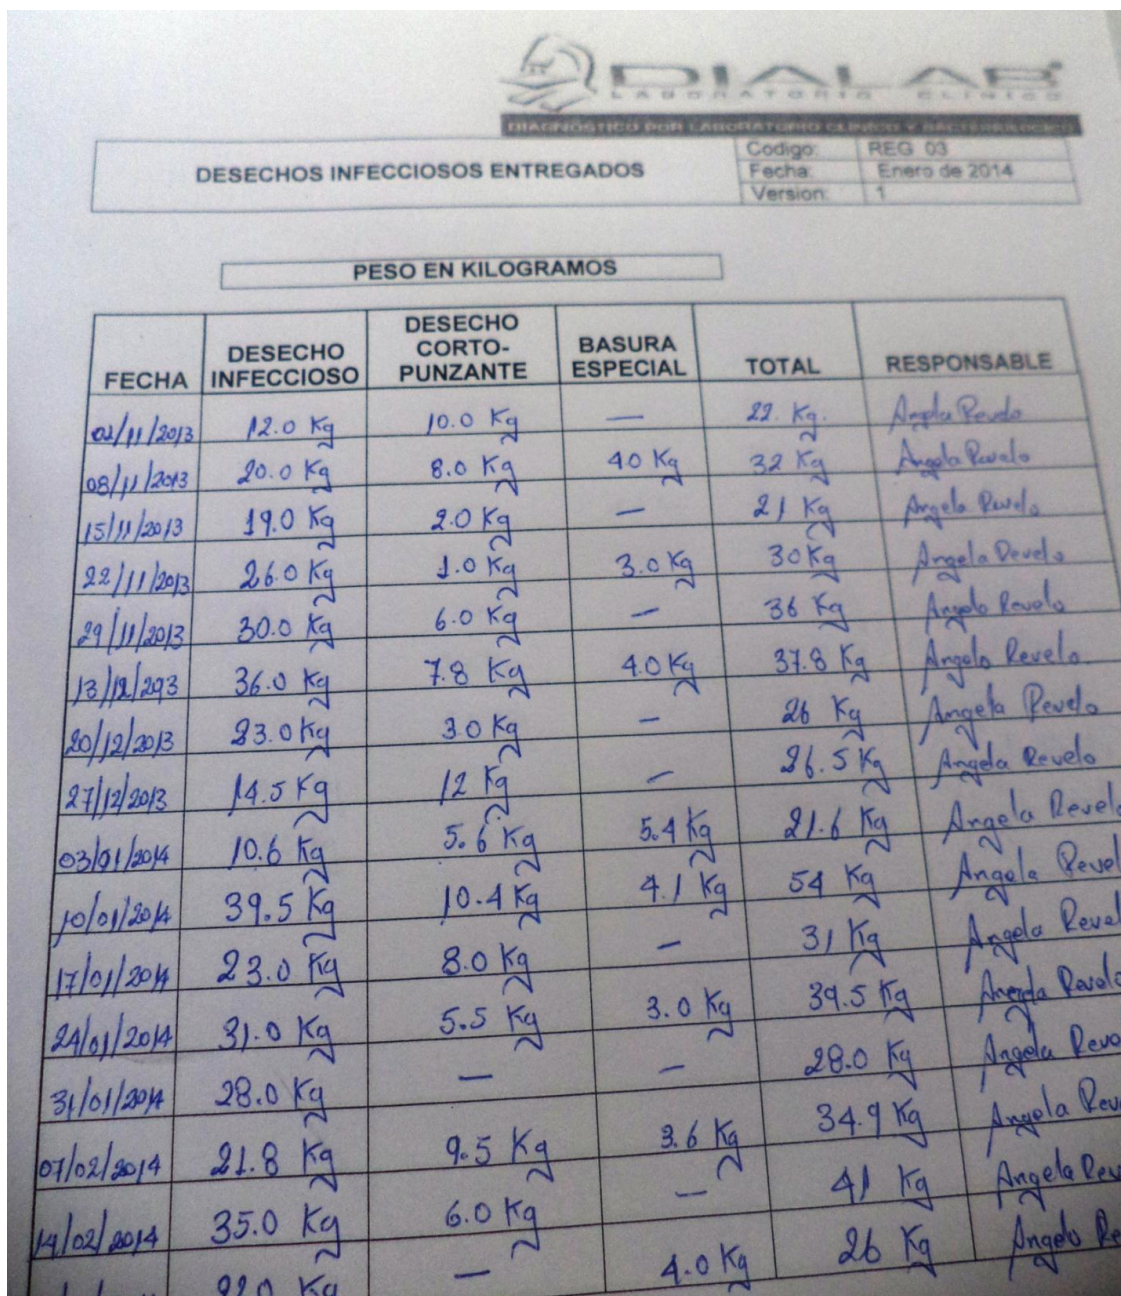 DIALAB
LABORATORIO CLINICO
DIAGNOSTICO POR LABORATORIO CLINICO Y BACTERIOLOGICO
DESECHOS INFECCIOSOS ENTREGADOS
Codigo: REG 03
Fecha: Enero de 2014
Version: 1
PESO EN KILOGRAMOS
FECHA DESECHO INFECCIOSO DESECHO CORTO-PUNZANTE BASURA ESPECIAL TOTAL RESPONSABLE
02/11/2013 12.0 Kg 10.0 Kg — 22. Kg. Angela Revelo
08/11/2013 20.0 Kg 8.0 Kg 4.0 Kg 32 Kg Angela Revelo
15/11/2013 19.0 Kg 2.0 Kg — 21 Kg Angela Revelo
22/11/2013 26.0 Kg 1.0 Kg 3.0 Kg 30 Kg Angela Revelo
29/11/2013 30.0 Kg 6.0 Kg — 36 Kg Angela Revelo
13/12/2013 36.0 Kg 7.8 Kg 4.0 Kg 37.8 Kg Angela Revelo.
20/12/2013 23.0 Kg 3.0 Kg — 26 Kg Angela Revelo
27/12/2013 14.5 Kg 12 Kg — 26.5 Kg Angela Revelo
03/01/2014 10.6 Kg 5.6 Kg 5.4 Kg 21.6 Kg Angela Revelo
10/01/2014 39.5 Kg 10.4 Kg 4.1 Kg 54 Kg Angela Revel
17/01/2014 23.0 Kg 8.0 Kg — 31 Kg Angela Revel
24/01/2014 31.0 Kg 5.5 Kg 3.0 Kg 39.5 Kg Angela Revelo
31/01/2014 28.0 Kg — — 28.0 Kg Angela Revo
07/02/2014 21.8 Kg 9.5 Kg 3.6 Kg 34.9 Kg Angela Rev
14/02/2014 35.0 Kg 6.0 Kg — 41 Kg Angela Rev
22.0 Kg — 4.0 Kg 26 Kg Angela Re